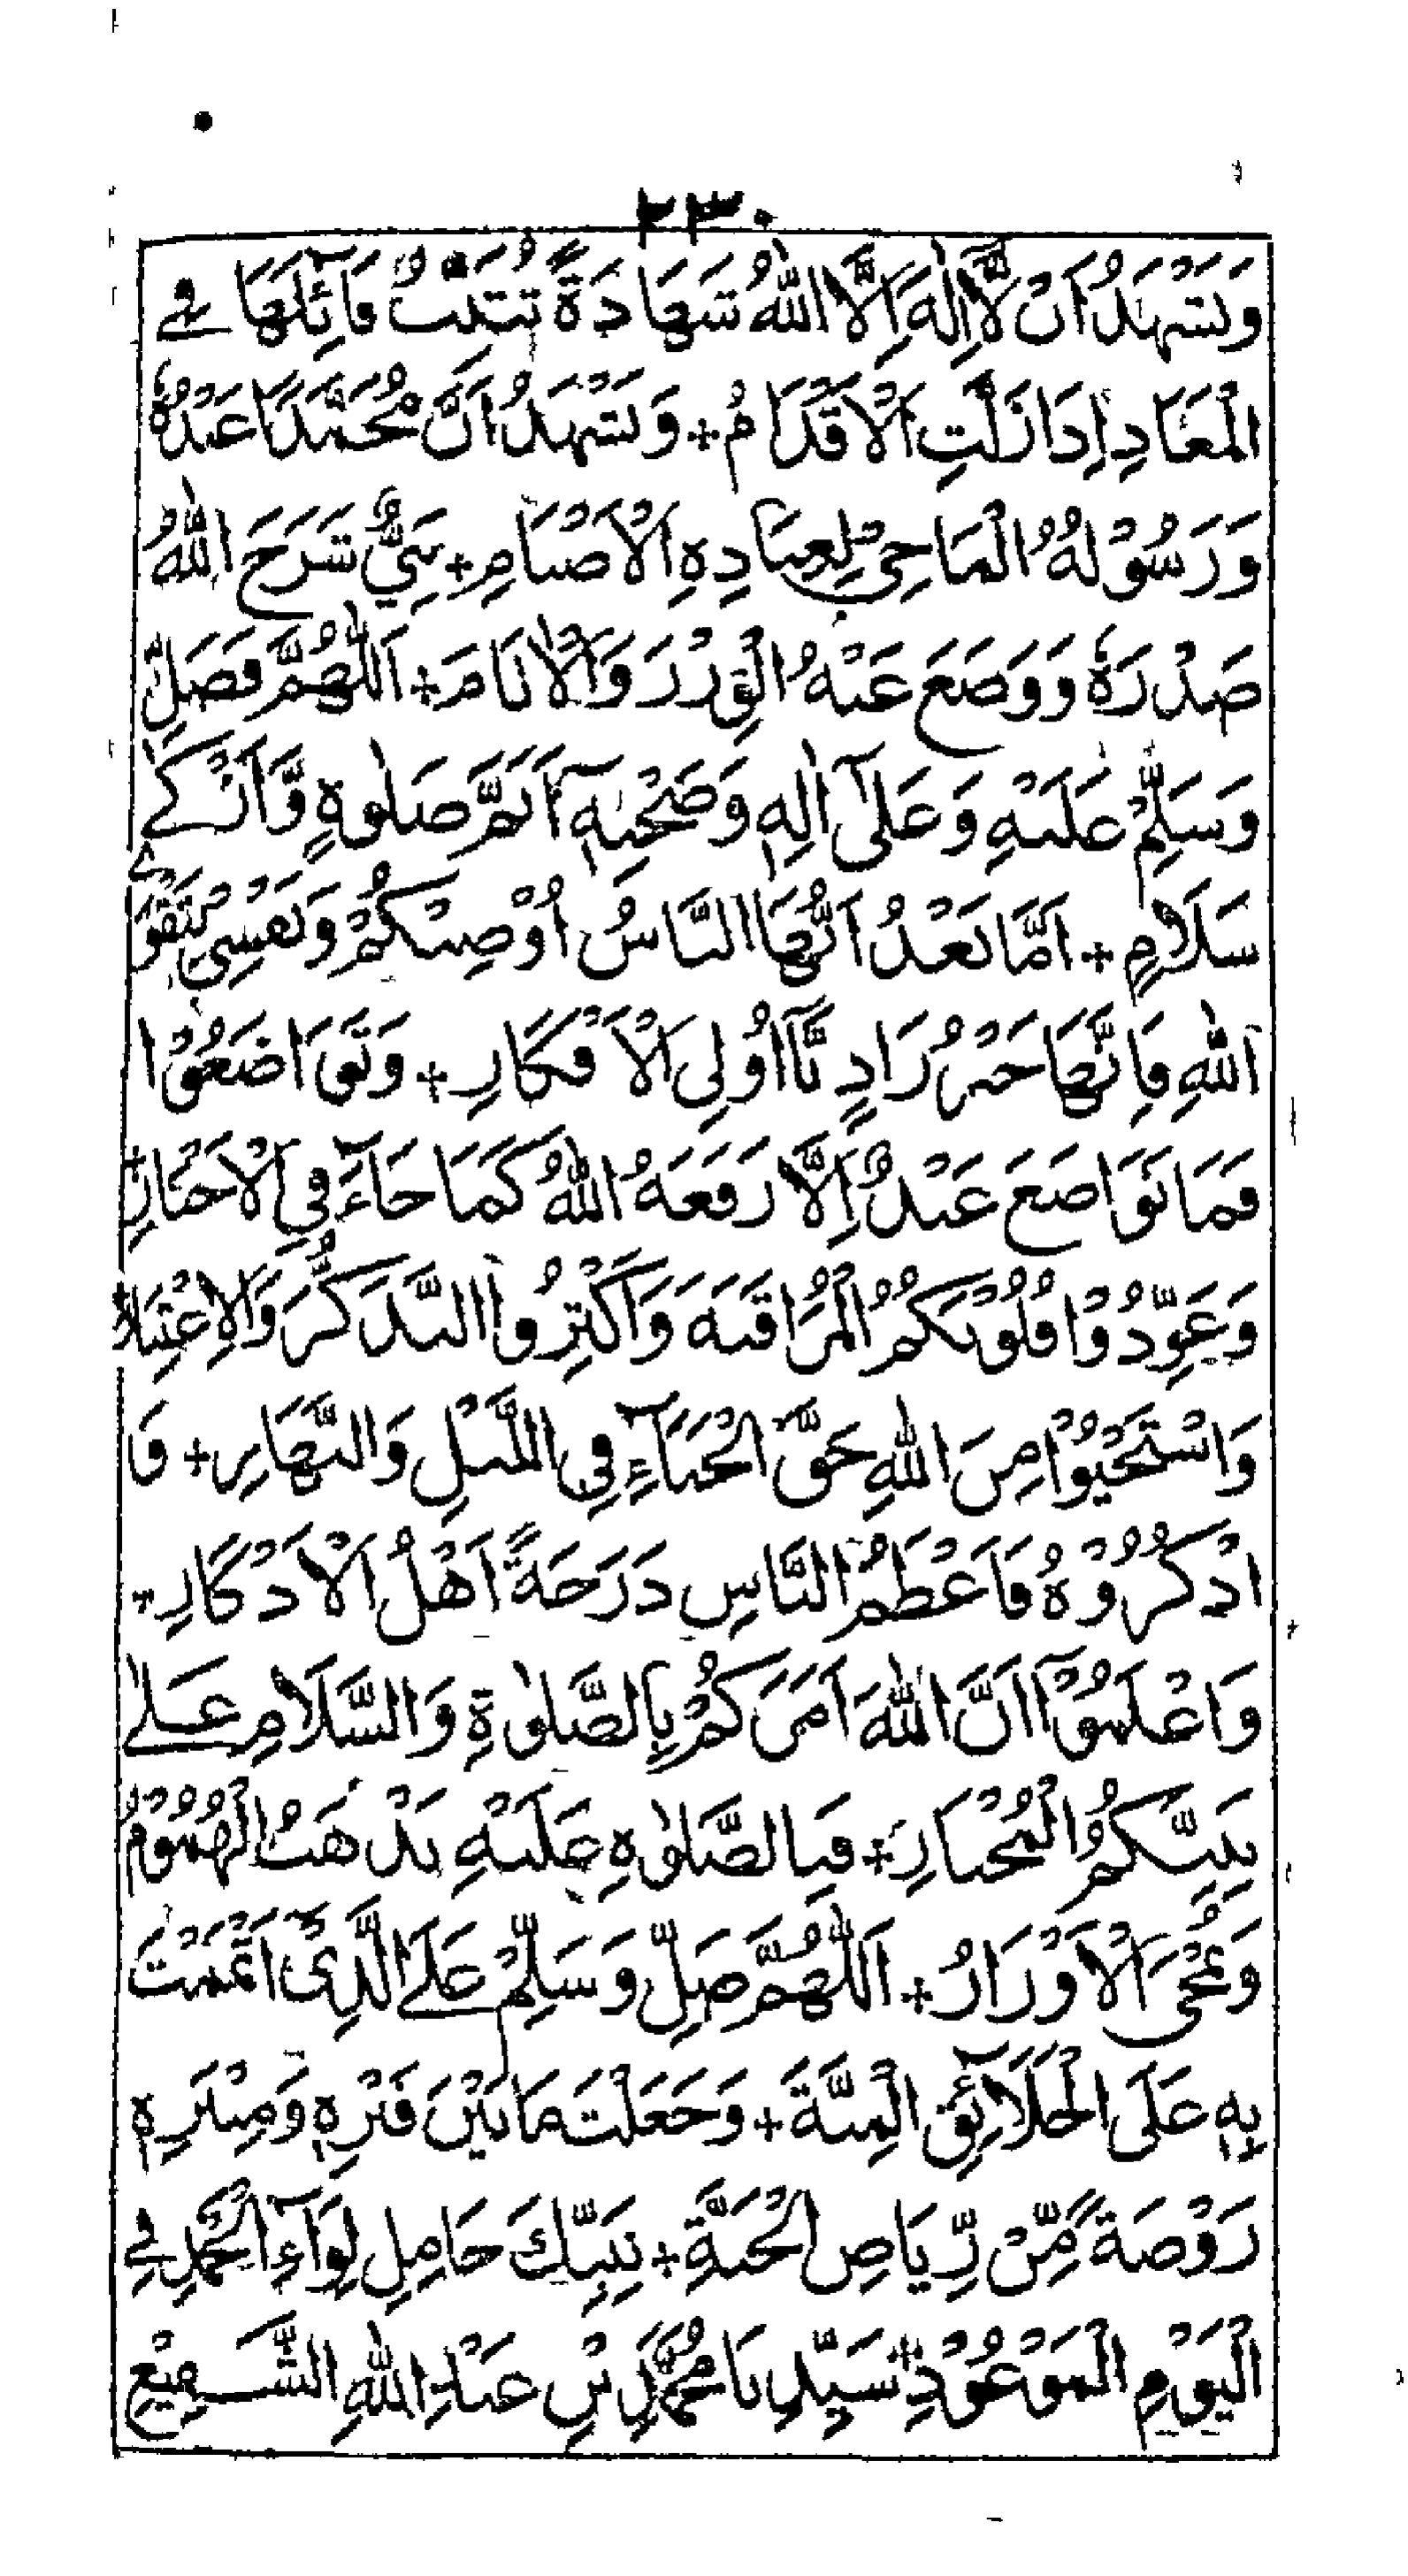 ٢٣٠
وَنَشْهَدُ اَنْ لَّا اِلٰهَ اِلَّا اللّٰهُ شَهَادَةً تُثَبِّتُ قَائِلَهَا فِے
الْمَعَادِ اِذَا زَلَّتِ الْاَقْدَامُ + وَنَشْهَدُ اَنَّ مُحَمَّدًا عَبْدُهٗ
وَرَسُوْلُهُ الْمَاحِیْ لِعِبَادِهِ الْاَصْنَامِ + نَبِیٌّ شَرَحَ اللّٰهُ
صَدْرَهٗ وَوَضَعَ عَنْهُ الْوِزْرَ وَالْاٰثَامَ + اَللّٰهُمَّ فَصَلِّ
وَسَلِّمْ عَلَيْهِ وَعَلٰٓى اٰلِهٖ وَصَحْبِهٖٓ اَتَمَّ صَلٰوةٍ وَّاَزْكٰے
سَلَامٍ + اَمَّا بَعْدُ اَيُّهَا النَّاسُ اُوْصِيْكُمْ وَنَفْسِیْ بِتَقْوَے
اللّٰهِ فَاِنَّهَا خَيْرُ زَادٍ يَّا اُولِی الْاَفْكَارِ + وَتَوَاضَعُوْا
فَمَا تَوَاضَعَ عَبْدٌ اِلَّا رَفَعَهُ اللّٰهُ كَمَا جَآءَ فِی الْاَخْبَارِ +
وَعَوِّدُوْا قُلُوْبَكُمُ الْمُرَاقَبَةَ وَاَكْثِرُوا التَّذَكُّرَ وَالْاِعْتِبَارَ +
وَاسْتَحْيُوْا مِنَ اللّٰهِ حَقَّ الْحَيَآءِ فِی اللَّيْلِ وَالنَّهَارِ + فَا
اذْكُرُوْهُ فَاَعْظَمُ النَّاسِ دَرَجَةً اَهْلُ الْاَذْكَارِ +
وَاعْلَمُوْٓا اَنَّ اللّٰهَ اَمَرَكُمْ بِالصَّلٰوةِ وَالسَّلَامِ عَلٰے
نَبِيِّكُمُ الْمُخْتَارِ + فَبِالصَّلٰوةِ عَلَيْهِ تَذْهَبُ الْهُمُوْمُ
وَتُمْحَی الْاَوْزَارُ + اَللّٰهُمَّ صَلِّ وَسَلِّمْ عَلَے الَّذِیْ اَتْمَمْتَ
بِهٖ عَلَى الْخَلَآئِقِ الْمِنَّةَ + وَجَعَلْتَ مَا بَيْنَ قَبْرِهٖ وَمِنْبَرِهٖ
رَوْضَةً مِّنْ رِّيَاضِ الْجَنَّةِ + نَبِيِّكَ حَامِلِ لِوَآءِ الْحَمْدِ فِے
الْيَوْمِ الْمَوْعُوْدِ + سَيِّدِنَا مُحَمَّدِ بْنِ عَبْدِ اللّٰهِ الشَّفِيْعِ